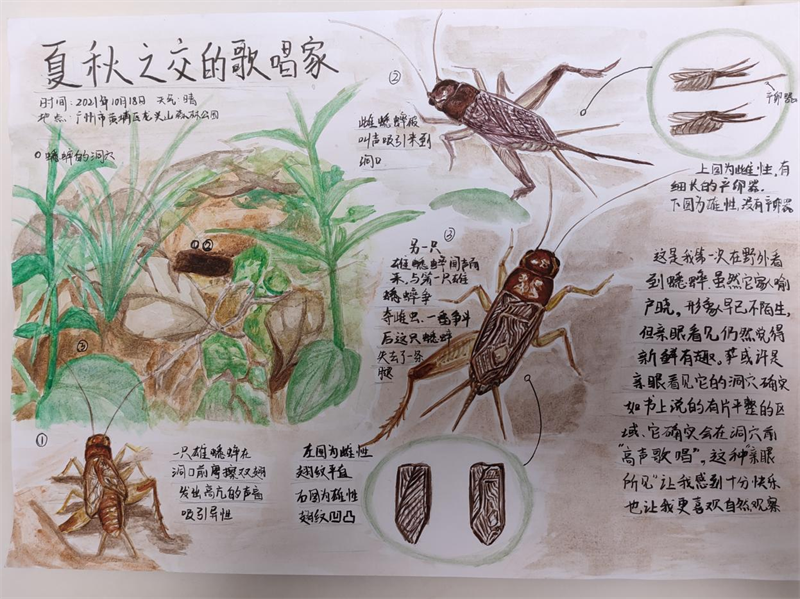 夏秋之交的歌唱家
时间：2021年10月18日 天气：晴
地点：广州市黄埔区龙头山森林公园
○蟋蟀的洞穴
①②
③
①
一只雄蟋蟀在
洞口前摩擦双翅
发出高亢的声音
吸引异性
②
雌蟋蟀被
叫声吸引来到
洞口
③
另一只
雄蟋蟀闻声而
来，与第一只雄
蟋蟀争
夺雌虫，一番争斗
后这只蟋蟀
失去了一条
腿
左图为雌性
翅纹平直
右图为雄性
翅纹凹凸
产卵器
上图为雌性，有
细长的产卵器。
下图为雄性，没有产卵器
这是我第一次在野外看
到蟋蟀，虽然它家喻
户晓。形象早已不陌生，
但亲眼看见仍然觉得
新鲜有趣。或许是
亲眼看见它的洞穴确实
如书上说的有片平整的区
域、它确实会在洞穴前
“高声歌唱”，这种“亲眼
所见”让我感到十分快乐
也让我更喜欢自然观察